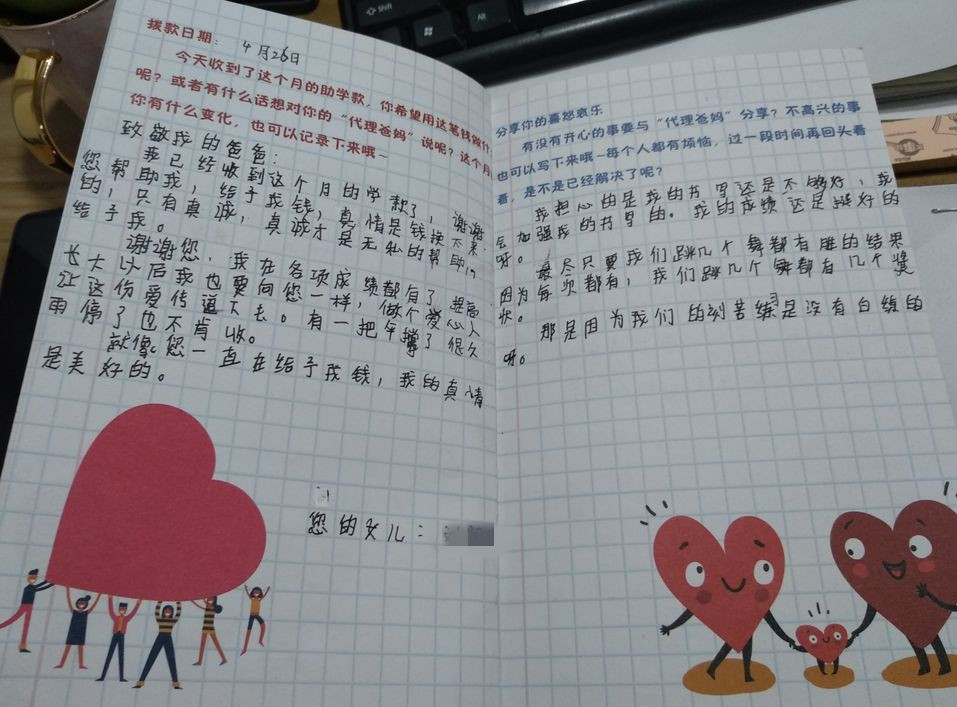 Shift
Alt
拨款日期： 4月26日
今天收到了这个月的助学款，你希望用这笔钱做什
呢？或者有什么话想对你的“代理爸妈”说呢？这个月
你有什么变化，也可以记录下来哦~
致敬我的爸爸：
我已经收到这个月的学款了，谢谢
您帮助我，给予我钱，真情是钱换不来
的，只有真诚，真诚才是无私的帮助
给予我。
谢谢您，我在各项成绩都有了提高，
长大以后我也要向您一样，做个爱心人
让这份爱传递下去。有一把伞撑了很久
雨停了也不肯收。
就像您一直在给予我钱，我的真情
是美好的。
您的女儿：
分享你的喜怒哀乐
有没有开心的事要与“代理爸妈”分享？不高兴的事
也可以写下来哦~每个人都有烦恼，过一段时间再回头看
看，是不是已经解决了呢？
我担心的是我的书写还是不够好，我
会加强我的书写的。我的成绩还是挺好的
呀。
最尽只要我们跳几个舞都有胜的结果
因为每次都有，我们跳几个舞都有几个奖
状。
那是因为我们的刻苦练习是没有白练的
呀。